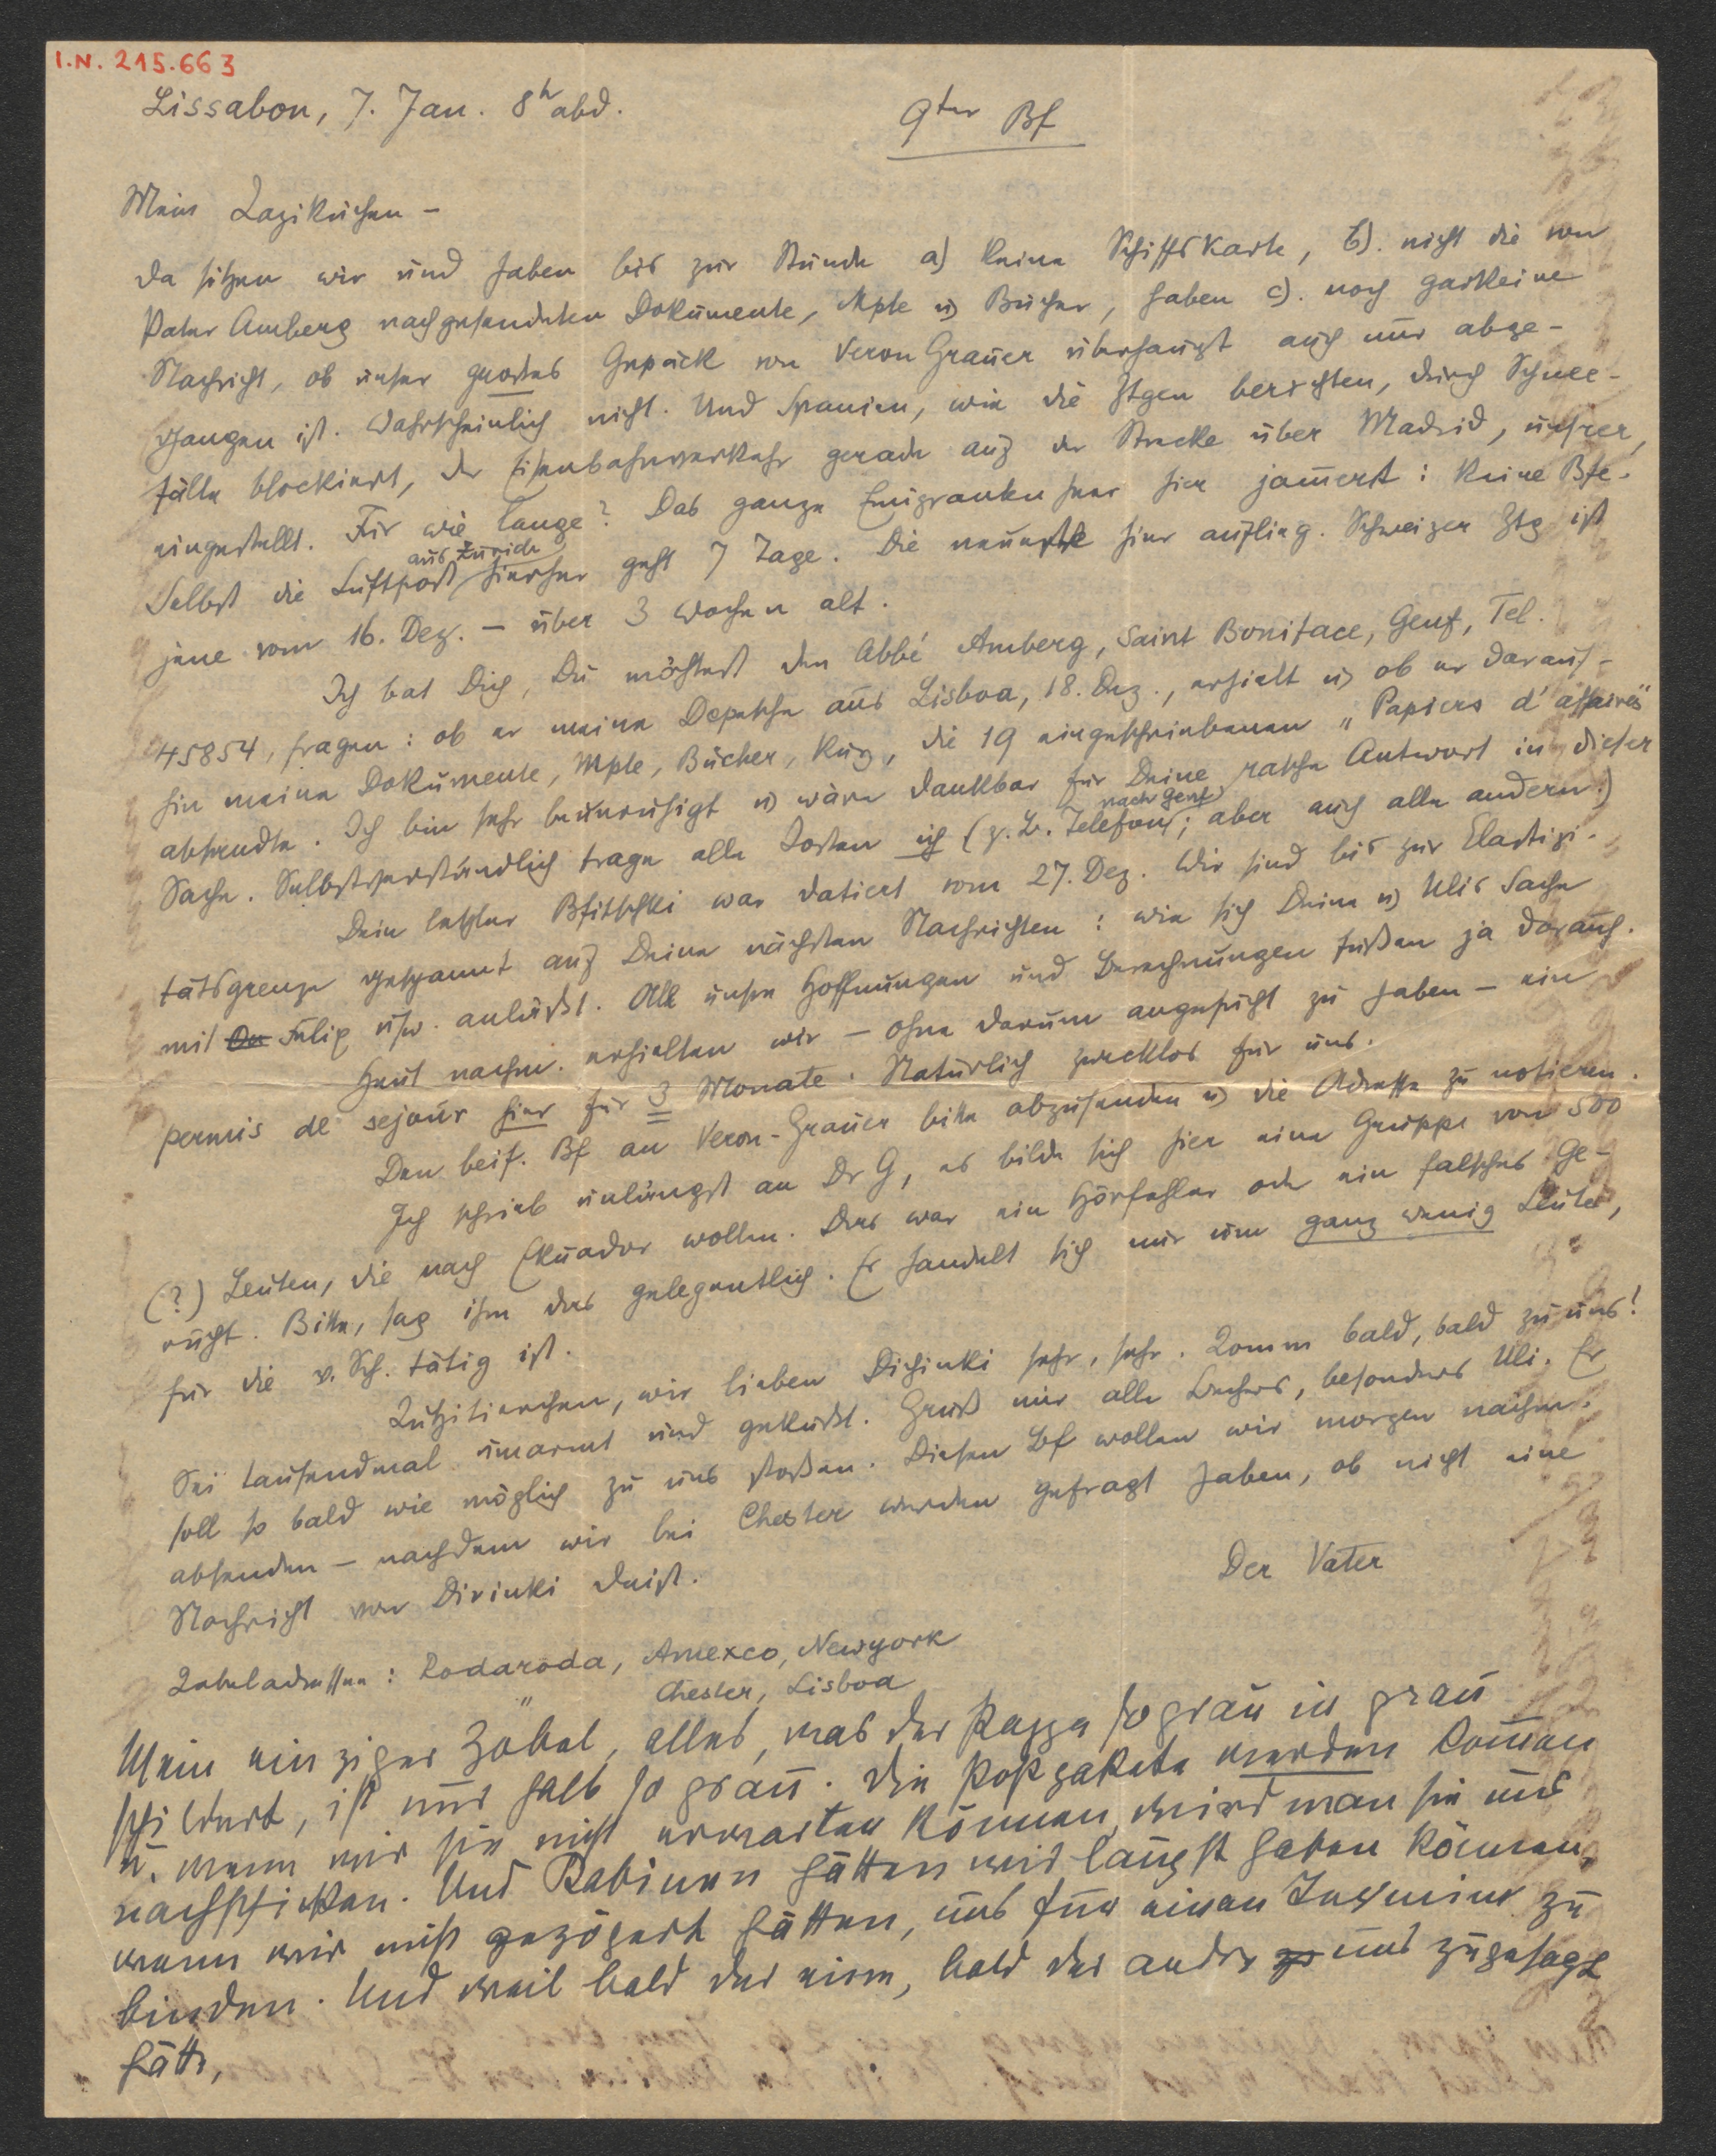 I.N. 215.663
Lissabon, 7. Jan. 8h abd.
9ter Bf
Mein Lazikuchen –
da sitzen wir und haben bis zur Stunde a) keine Schiffskarte, b). nicht die von
Pater Amberg nachgesendeten Dokumente, Mple u) Bücher, haben c). noch garkeine
Nachricht, ob unser großes Gepäck von Veron Grauer überhaupt auch nur abge-
gangen ist. Wahrscheinlich nicht. Und Spanien, wie die Ztgen berichten, durch Schnee-
fälle blockiert, der Eisenbahnverkehr gerade auf der Strecke über Madrid, unsrer,
eingestellt. Für wie lange? Das ganze Emigrantenheer hier jam̄ert: keine Bfe.
Selbst die Luftpost aus Zürich hierher geht 7 Tage. Die neueste hier auflieg. Schweizer Ztg ist
jene vom 16. Dez. – über 3 Wochen alt.
Ich bat Dich, Du möchtest den Abbé Amberg, Saint Boniface, Genf, Tel.
45854, fragen: ob er meine Depesche aus Lisboa, 18. Dez., erhielt u) ob er darauf-
hin meine Dokumente, Mple, Bücher, kurz, die 19 eingeschriebenen „Papiers d'affaires"
absendte. Ich bin sehr beunruhigt u) wäre dankbar für Deine rasche Antwort in dieser
Sache. Selbstverständlich trage alle Kosten ich (z. B. Telefon nach Genf; aber auch alle andern.)
Dein letzter Bfitschki war datiert vom 27. Dez. Wir sind bis zur Elastizi-
tätsgrenze gespannt auf Deine nächsten Nachrichten: wie sich Deine u) Ulis Sache
mit Felix usw. anläßt. All unsre Hoffnungen und Berechnungen fußen ja darauf.
Heut nachm. erhielten wir – ohne darum angesucht zu haben – ein
permis de sejour hier für 3 Monate. Natürlich zwecklos für uns.
Den beif. Bf an Veron-Grauer bitte abzusenden u) die Adresse zu notieren.
Ich schrieb unlängst an Dr G, es bilde sich hier eine Gruppe von 500
(?) Leuten, die nach Ekuador wollen. Das war ein Hörfehler oder ein falsches Ge-
rücht. Bitte, sag ihm das gelegentlich. Er handelt sich nur um ganz wenig Leute,
für die v. Sch. tätig ist.
Lutzitierchen, wir lieben Dichinki sehr, sehr. Komm bald, bald zu uns!
Sei tausendmal umarmt und geküßt. Gruß mir alle Bechers, besonders Uli. Er
soll so bald wie möglich zu uns stoßen. Diesen Bf wollen wir morgen nachm.
absenden – nachdem wir bei Chester werden gefragt haben, ob nicht eine
Nachricht von Dirinki daist.
Der Vater
Kabeladressen: Rodaroda, Amexco, Newyork
" Chester, Lisboa
Mein einziger Zobel, alles, was der Pappa so grau in grau
schildert, ist nur halb so grau. Die Postpakete werden kom̄en
u. wenn wir sie nicht erwarten können, wird man sie uns
nachschicken. Und Kabinen hätten wir längst haben können,
wenn wir nicht gezögert hätten, uns für einen Termin zu
binden. Und weil bald der eine, bald der andre uns zugesagt
hätte,